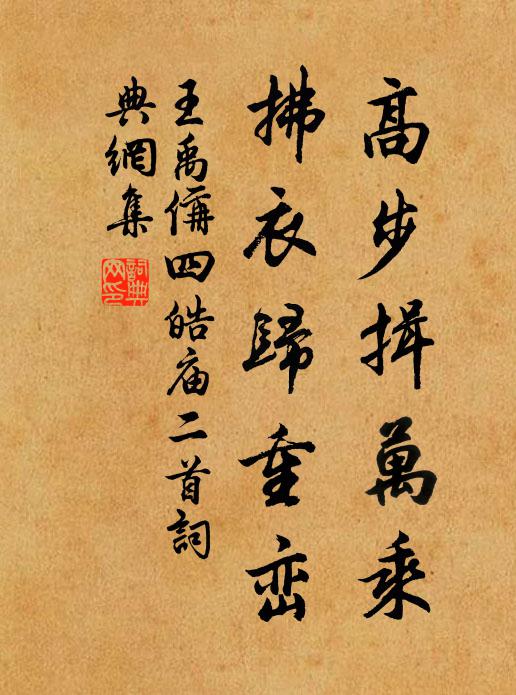 高步揖萬乘
拂衣歸重峦
王禹偁四皓庙二首詞
典網集
詞典
网印